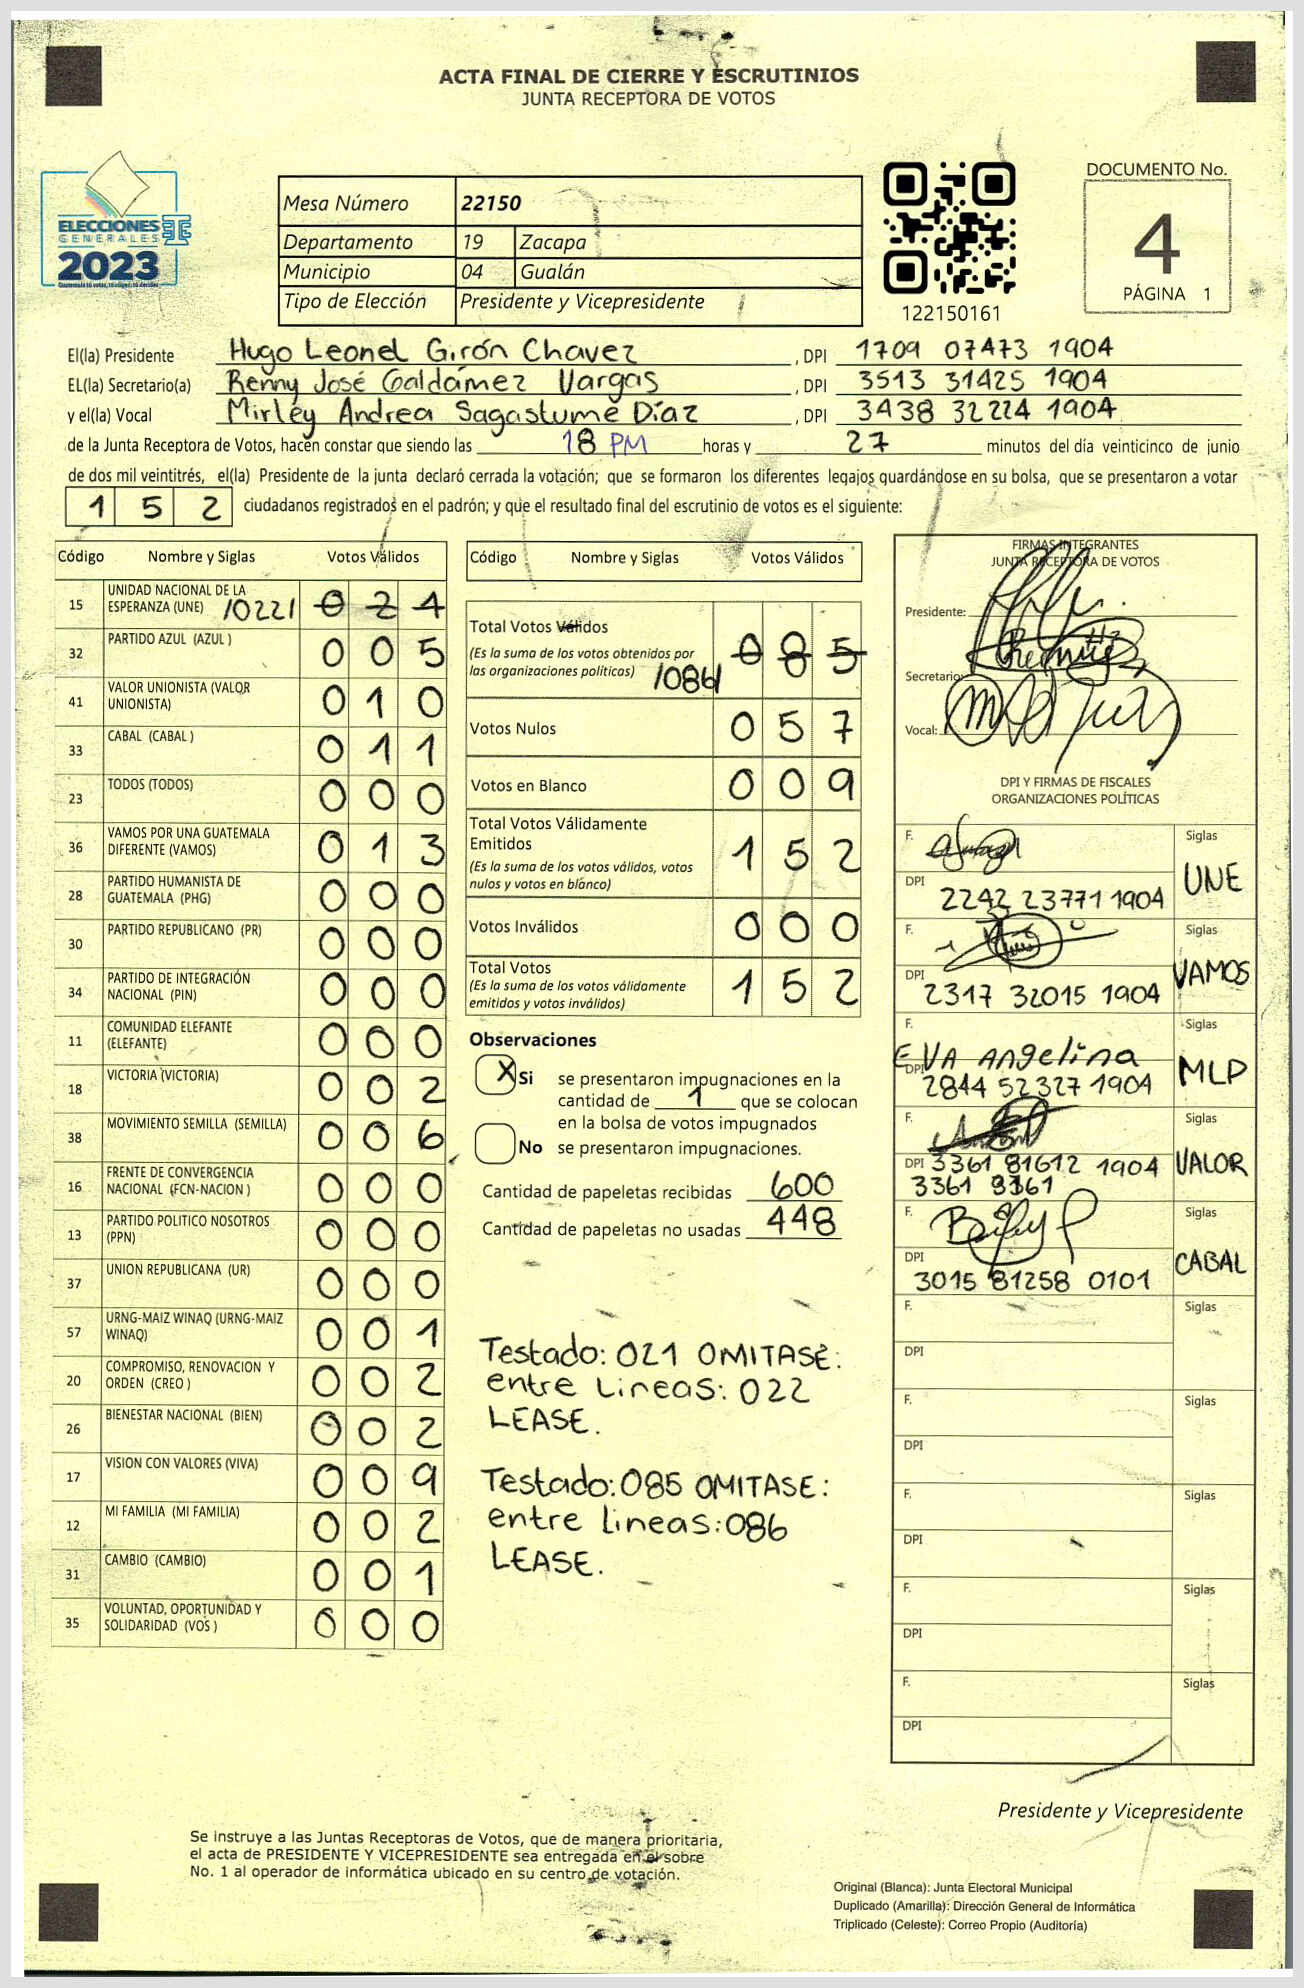 ACTA FINAL DE CIERRE Y ESCRUTINIOS
JUNTA RECEPTORA DE VOTOS
ELECCIONES
GENERALES
2023
Mesa Número 22150
Departamento 19 Zacapa
Municipio 04 Gualán
Tipo de Elección Presidente y Vicepresidente
122150161
DOCUMENTO No.
4
PÁGINA 1
El(la) Presidente Hugo Leonel Girón Chavez , DPI 1709 07473 1904
EL(la) Secretario(a) Renny José Galdámez Vargas , DPI 3513 31425 1904
y el(la) Vocal Mirley Andrea Sagastume Díaz , DPI 3438 32224 1904
de la Junta Receptora de Votos, hacen constar que siendo las 18 PM horas y 27 minutos del día veinticinco de junio
de dos mil veintitrés, el(la) Presidente de la junta declaró cerrada la votación; que se formaron los diferentes legajos guardándose en su bolsa, que se presentaron a votar
1 5 2 ciudadanos registrados en el padrón; y que el resultado final del escrutinio de votos es el siguiente:
Código Nombre y Siglas Votos Válidos
15 UNIDAD NACIONAL DE LA
ESPERANZA (UNE) /022/ 0 2 1
32 PARTIDO AZUL (AZUL ) 0 0 5
41 VALOR UNIONISTA (VALOR
UNIONISTA) 0 1 0
33 CABAL (CABAL ) 0 1 1
23 TODOS (TODOS) 0 0 0
36 VAMOS POR UNA GUATEMALA
DIFERENTE (VAMOS) 0 1 3
28 PARTIDO HUMANISTA DE
GUATEMALA (PHG) 0 0 0
30 PARTIDO REPUBLICANO (PR) 0 0 0
34 PARTIDO DE INTEGRACIÓN
NACIONAL (PIN) 0 0 0
11 COMUNIDAD ELEFANTE
(ELEFANTE) 0 0 0
18 VICTORIA (VICTORIA) 0 0 2
38 MOVIMIENTO SEMILLA (SEMILLA) 0 0 6
16 FRENTE DE CONVERGENCIA
NACIONAL (FCN-NACION ) 0 0 0
13 PARTIDO POLITICO NOSOTROS
(PPN) 0 0 0
37 UNION REPUBLICANA (UR) 0 0 0
57 URNG-MAIZ WINAQ (URNG-MAIZ
WINAQ) 0 0 1
20 COMPROMISO, RENOVACION Y
ORDEN (CREO ) 0 0 2
26 BIENESTAR NACIONAL (BIEN) 0 0 2
17 VISION CON VALORES (VIVA) 0 0 9
12 MI FAMILIA (MI FAMILIA) 0 0 2
31 CAMBIO (CAMBIO) 0 0 1
35 VOLUNTAD, OPORTUNIDAD Y
SOLIDARIDAD (VOS ) 0 0 0
Código Nombre y Siglas Votos Válidos
Total Votos Válidos
(Es la suma de los votos obtenidos por
las organizaciones políticas) /086/ 0 8 5
Votos Nulos 0 5 7
Votos en Blanco 0 0 9
Total Votos Válidamente
Emitidos 1 5 2
(Es la suma de los votos válidos, votos
nulos y votos en blanco)
Votos Inválidos 0 0 0
Total Votos
(Es la suma de los votos válidamente
emitidos y votos inválidos) 1 5 2
Observaciones
X Si se presentaron impugnaciones en la
cantidad de 1 que se colocan
en la bolsa de votos impugnados
No se presentaron impugnaciones.
Cantidad de papeletas recibidas 600
Cantidad de papeletas no usadas 448
Testado: 021 OMITASE:
entre lineas: 022
LEASE.
Testado: 085 OMITASE:
entre lineas: 086
LEASE.
FIRMAS INTEGRANTES
JUNTA RECEPTORA DE VOTOS
Presidente:
Secretario:
Vocal:
DPI Y FIRMAS DE FISCALES
ORGANIZACIONES POLÍTICAS
F. Siglas
DPI 2242 23771 1904 UNE
F. Siglas
DPI 2317 32015 1904 VAMOS
F. Siglas
EVA Angelina
DPI 2844 52327 1904 MLP
F. Siglas
DPI 3361 81612 1904 VALOR
3361 8361
F. Siglas
DPI 3015 81258 0101 CABAL
F. Siglas
DPI
F. Siglas
DPI
F. Siglas
DPI
F. Siglas
DPI
F. Siglas
DPI
Presidente y Vicepresidente
Se instruye a las Juntas Receptoras de Votos, que de manera prioritaria,
el acta de PRESIDENTE Y VICEPRESIDENTE sea entregada en el sobre
No. 1 al operador de informática ubicado en su centro de votación.
Original (Blanca): Junta Electoral Municipal
Duplicado (Amarilla): Dirección General de Informática
Triplicado (Celeste): Correo Propio (Auditoría)